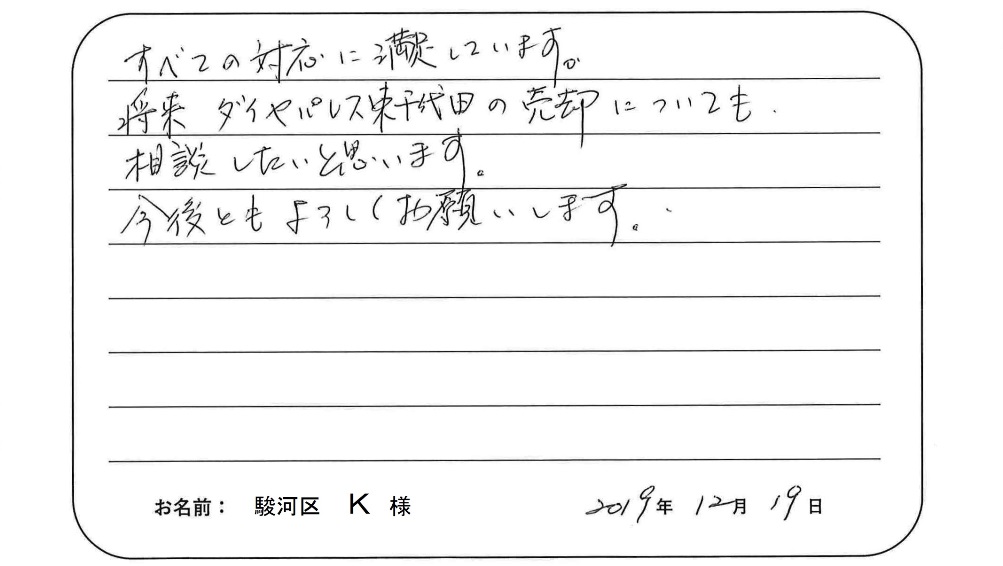 すべての対応に満足しています。
将来 ダイヤパレス東千代田の売却についても.
相談したいと思います。
今後ともよろしくお願いします。
お名前： 駿河区 K 様 2019年 12月 19日